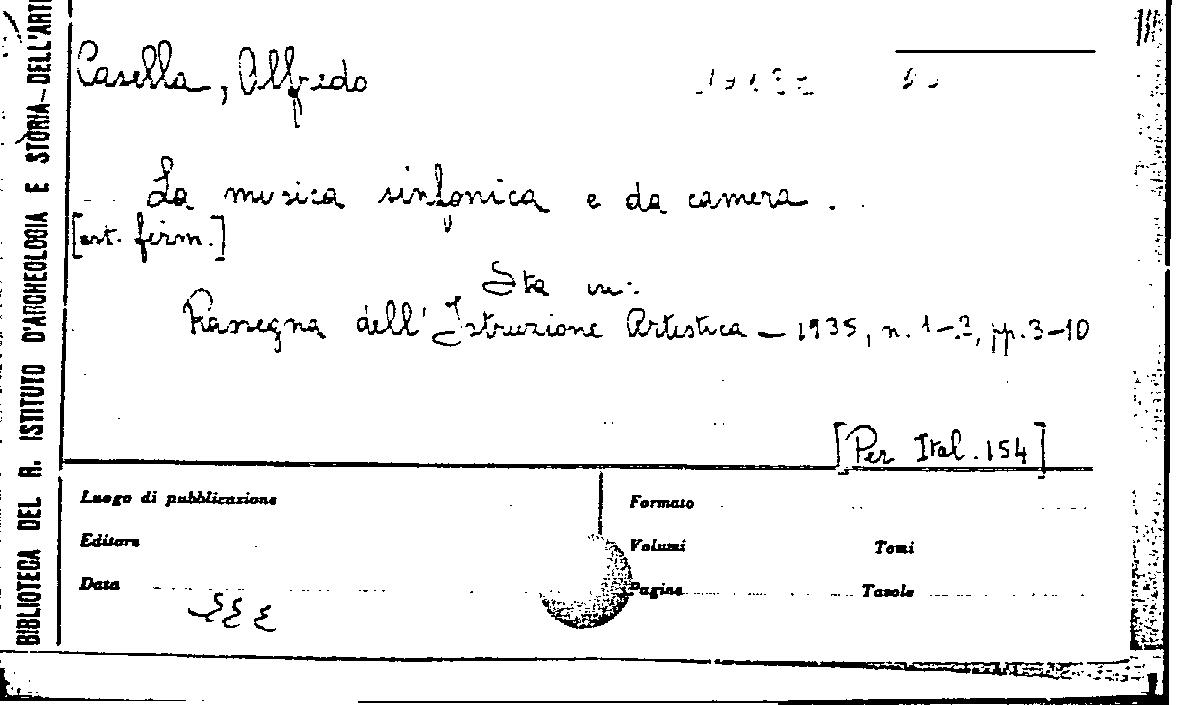 BIBLIOTECA DEL R. ISTITUTO D'ARCHEOLOGIA E STORIA DELL'ARTE
Casella, Alfredo
La musica sinfonica e da camera.
[art. firm.]
Sta in:
Rassegna dell'Istruzione Artistica – 1935, n. 1-2, pp. 3-10
[Per Ital. 154]
Luogo di pubblicazione
Formato
Editore
Volumi
Tomi
Data
Pagine
Tavole